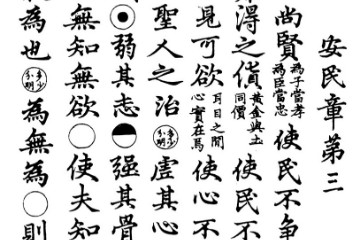 安民章第三
尚賢為子當孝為臣當忠使民不争
得之貨黃金與土同價使民不
見可欲耳目之間心實在焉使心不
聖人之治多少分明虛其心
弱其志強其骨
無知無欲○使夫知
為也多少分明為無為○則